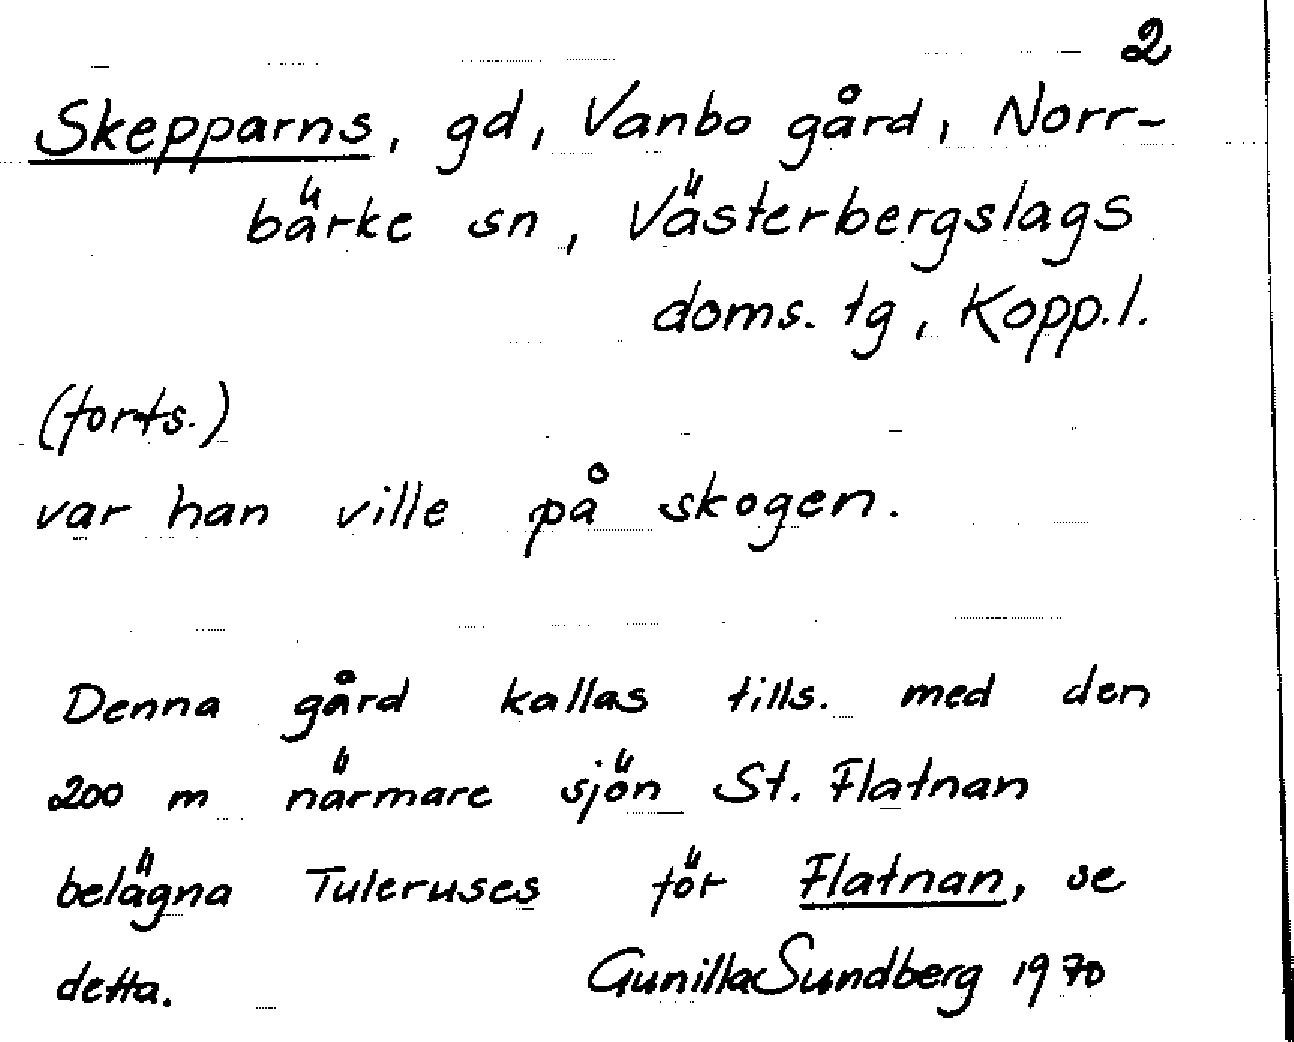 2
Skepparns, gd, Vanbo gård, Norr-
bärke sn, Västerbergslags
doms. tg, Kopp.l.
(forts.)
var han ville på skogen.
Denna gård kallas tills. med den
200 m närmare sjön St. Flatnan
belägna Tuleruses för Flatnan, se
detta. Gunilla Sundberg 1970